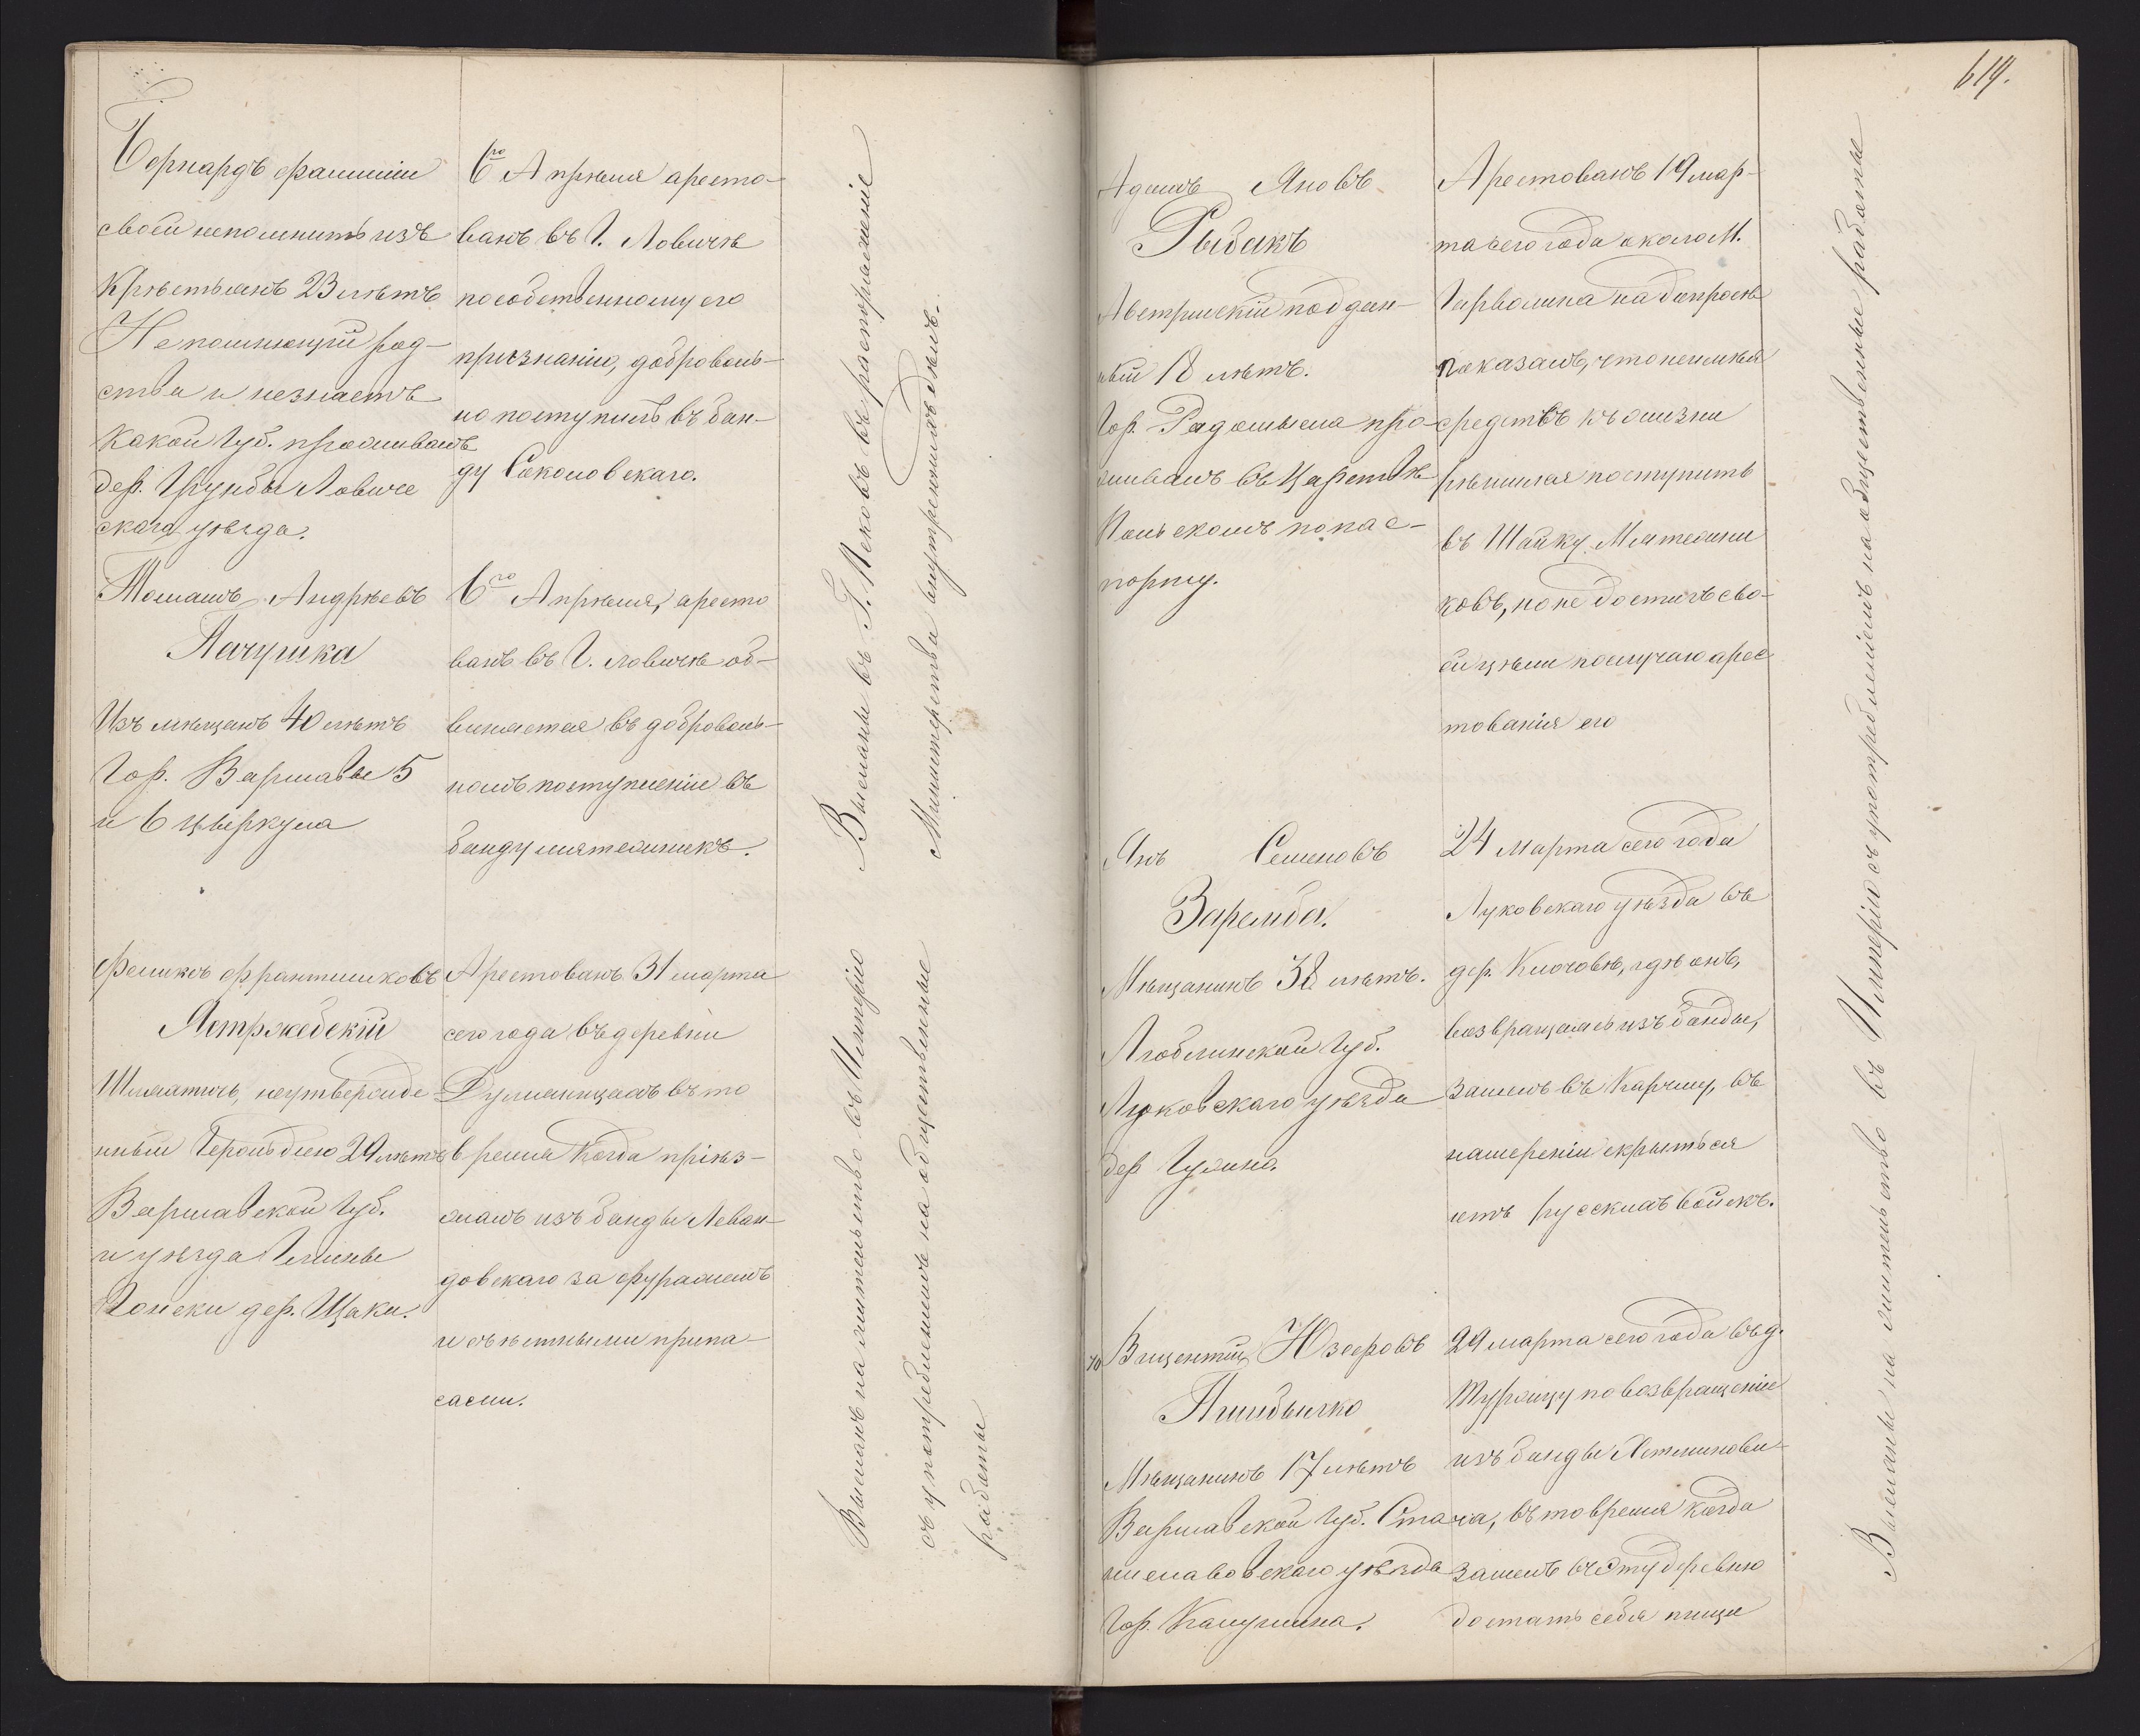 Бернардъ фамиліи
своей непомнитъ изъ
Крѣстьянъ 23 лѣтъ
Непомнющій род-
ства и незнаетъ
какой Губ. проживалъ
дер. Грунбы Ловиче
скаго уѣзда.
6го Апрѣля аресто-
ванъ въ Г. Ловичѣ
пособственному его
признанію, доброволь-
но поступилъ въ бан-
ду Соколовскаго.
Томашъ Андрѣевъ
Пачушка
Изъ мѣщанъ 40 лѣтъ
Гор. Варшавы 5
и 6 цыркула
6го Апрѣля, аресто
ванъ въ Г. Ловичѣ об-
виняется въ доброволь-
номъ поступленіи въ
банду мятежникъ.
Высланы въ Г. Псковъ въ распоряженіе
Министерства внутреннихъ дѣлъ.
Феликсъ Франтишковъ
Ястржебскій
Шляхтичъ, неутвержде-
нный Герольдіею 29 лѣтъ
Варшавской Губ.
и уѣзда Гмины
Конски дер. Щаки.
Арестованъ 31 марта
сего года въ деревни
въ то
время когда пріѣз-
жалъ изъ банды Леван-
довскаго за фуражемъ
и съѣстными припа-
сами.
Высланъ на жительство въ Имперію
съ употребленіемъ на общественные
работы
619.
Адамъ Яновъ
Рыбакъ
Австрійскій поддан-
ный 18 лѣтъ.
Гор. Радомысла про-
живалъ въ Царствѣ
Польскомъ по пас-
порту.
Арестованъ 19 мар-
та сего года около М.
Гарволина на допросѣ
показалъ, что неимѣя
средствъ къ жизни
рѣшился поступить
въ Шайку Мятежни
ковъ, но не достигъ сво-
ей цѣли послучаю арес
тованія его
Янъ Семеновъ
Заремба.
Мѣщанинъ 38 лѣтъ.
Люблинской Губ.
Луковскаго уѣзда
дер Гулина.
24 Марта сего года
Луковскаго уѣзда въ
дер. Клочовѣ, гдѣ онъ,
возвращаясь изъ банды,
зашелъ въ Карчму, въ
намереніи скрыться
отъ русскихъ войскъ.
70 Вицентій Юзефовъ
Пшибычко
Мѣщанинъ 17 лѣтъ
Варшавской Губ. Ста-
ниславовскаго уѣзда
Гор. Калушина.
29 марта сего года въ д.
Туржцу по возвращеніи
изъ банды Ястшинови-
ча, въ то время когда
зашелъ въ эту деревню
достать себѣ пищи
Высланы на жительство въ Имперію съ употребленіемъ на общественные работы